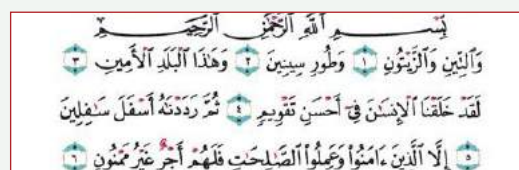 بِسْمِ ٱللَّهِ ٱلرَّحْمَٰنِ ٱلرَّحِيمِ
وَٱلتِّينِ وَٱلزَّيْتُونِ ١ وَطُورِ سِينِينَ ٢ وَهَٰذَا ٱلْبَلَدِ ٱلْأَمِينِ ٣
لَقَدْ خَلَقْنَا ٱلْإِنسَٰنَ فِىٓ أَحْسَنِ تَقْوِيمٍ ٤ ثُمَّ رَدَدْنَٰهُ أَسْفَلَ سَٰفِلِينَ
٥ إِلَّا ٱلَّذِينَ ءَامَنُوا۟ وَعَمِلُوا۟ ٱلصَّٰلِحَٰتِ فَلَهُمْ أَجْرٌ غَيْرُ مَمْنُونٍ ٦